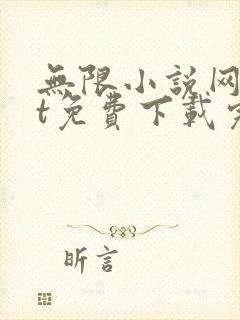 無限小說网
t免費下載完
昕言